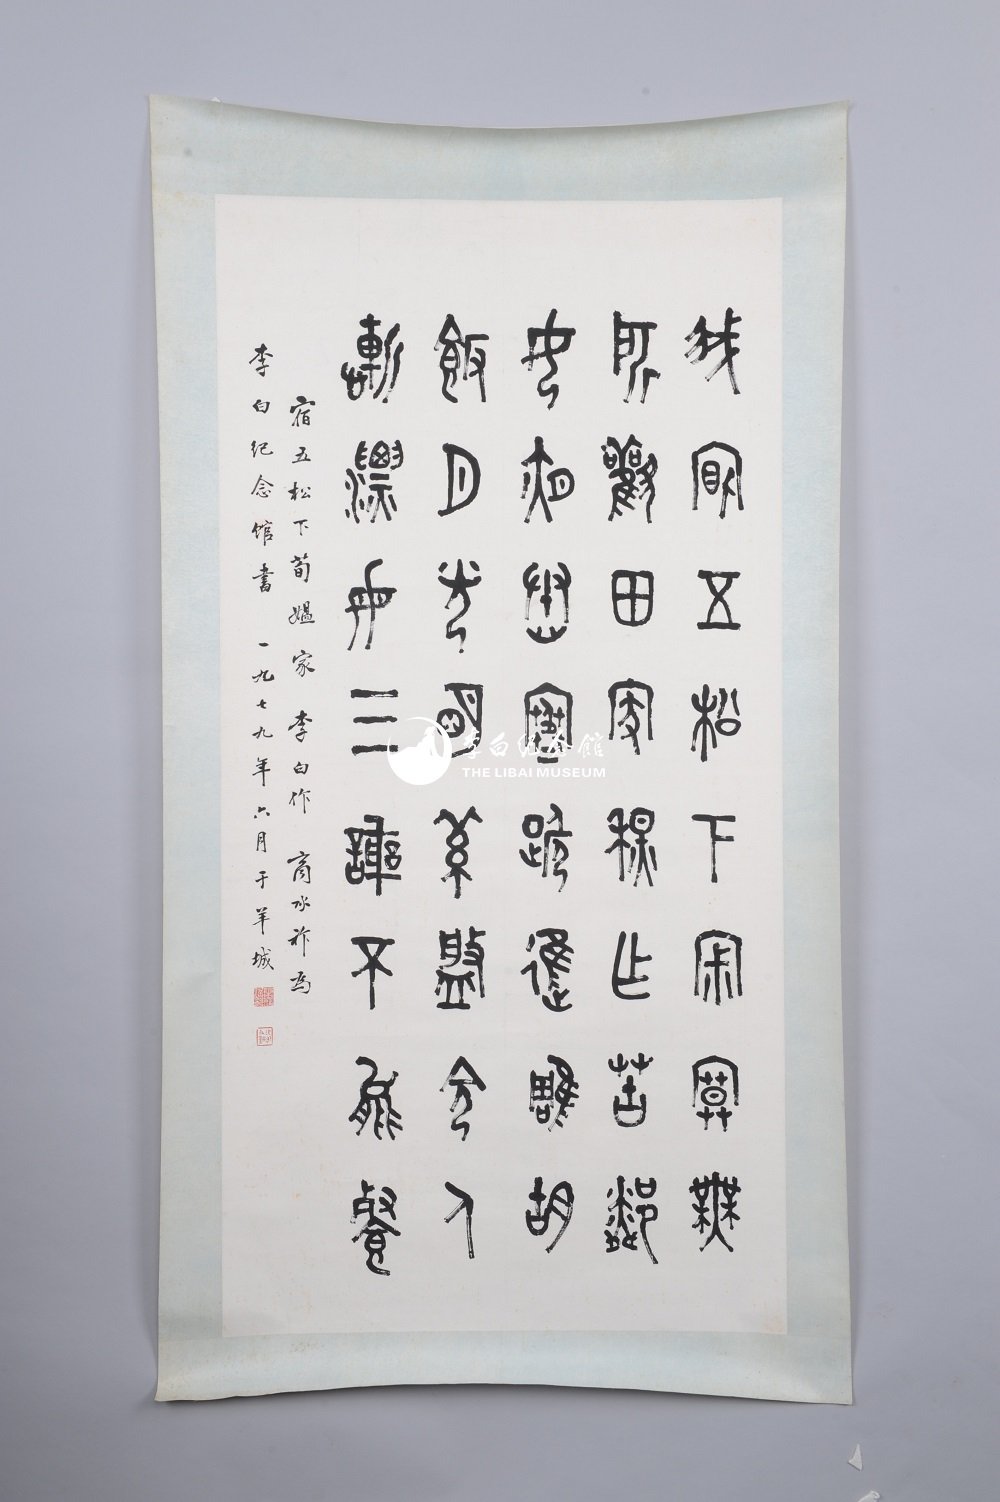 我宿五松下寂寥無
所歡田家秋作苦鄰
女夜舂寒跪進雕胡
飯月光明素盤令人
慚漂母三謝不能餐
宿五松下荀媼家 李白作 商承祚為
李白纪念館書 一九七九年六月于羊城
李白纪念馆
THE LIBAI MUSEUM